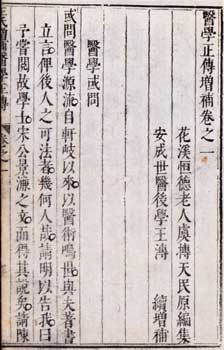 醫學正傳增補卷之一
花溪恒德老人虞摶天民原編集
安成世醫後學王 續增補
醫學或問
或問醫學源流自軒岐以來以醫術鳴世與夫著書
立言俾後人之可法者幾何人哉請明以告我曰
予嘗閱故學士宋公景濂之文而得其說矣請陳